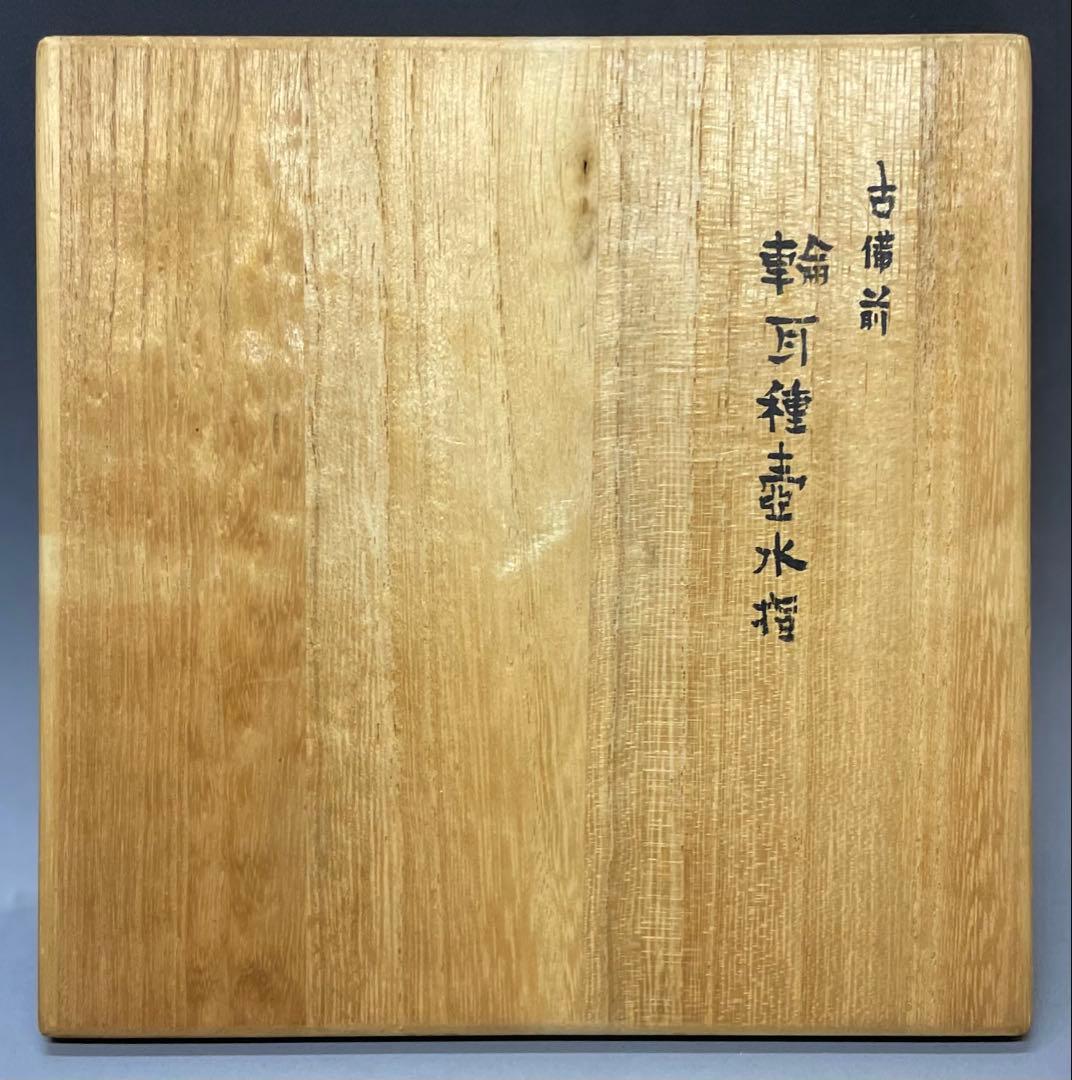 古備前
輪耳種壺水指